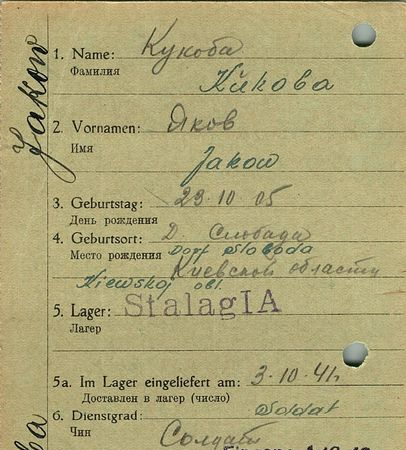 Jakow
1. Name: Кукоба
Фамилия
Kukoba
2. Vornamen: Яков
Имя
Jakow
3. Geburtstag: 23·10 05
День рождения
4. Geburtsort: Д. Слобада
Место рождения Dorf Sloboda
Киевской области
Kiewskoj obl.
5. Lager: Stalag IA
Лагер
5a. Im Lager eingeliefert am: 3·10·41
Доставлен в лагер (число)
6. Dienstgrad: Soldat
Чин Солдат